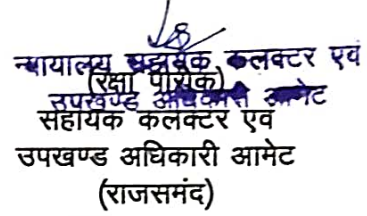 न्यायालय सहायक कलक्टर एवं
(रक्षा पारीक)
उपखण्ड अधिकारी आमेट
सहायक कलक्टर एवं
उपखण्ड अधिकारी आमेट
(राजसमंद)